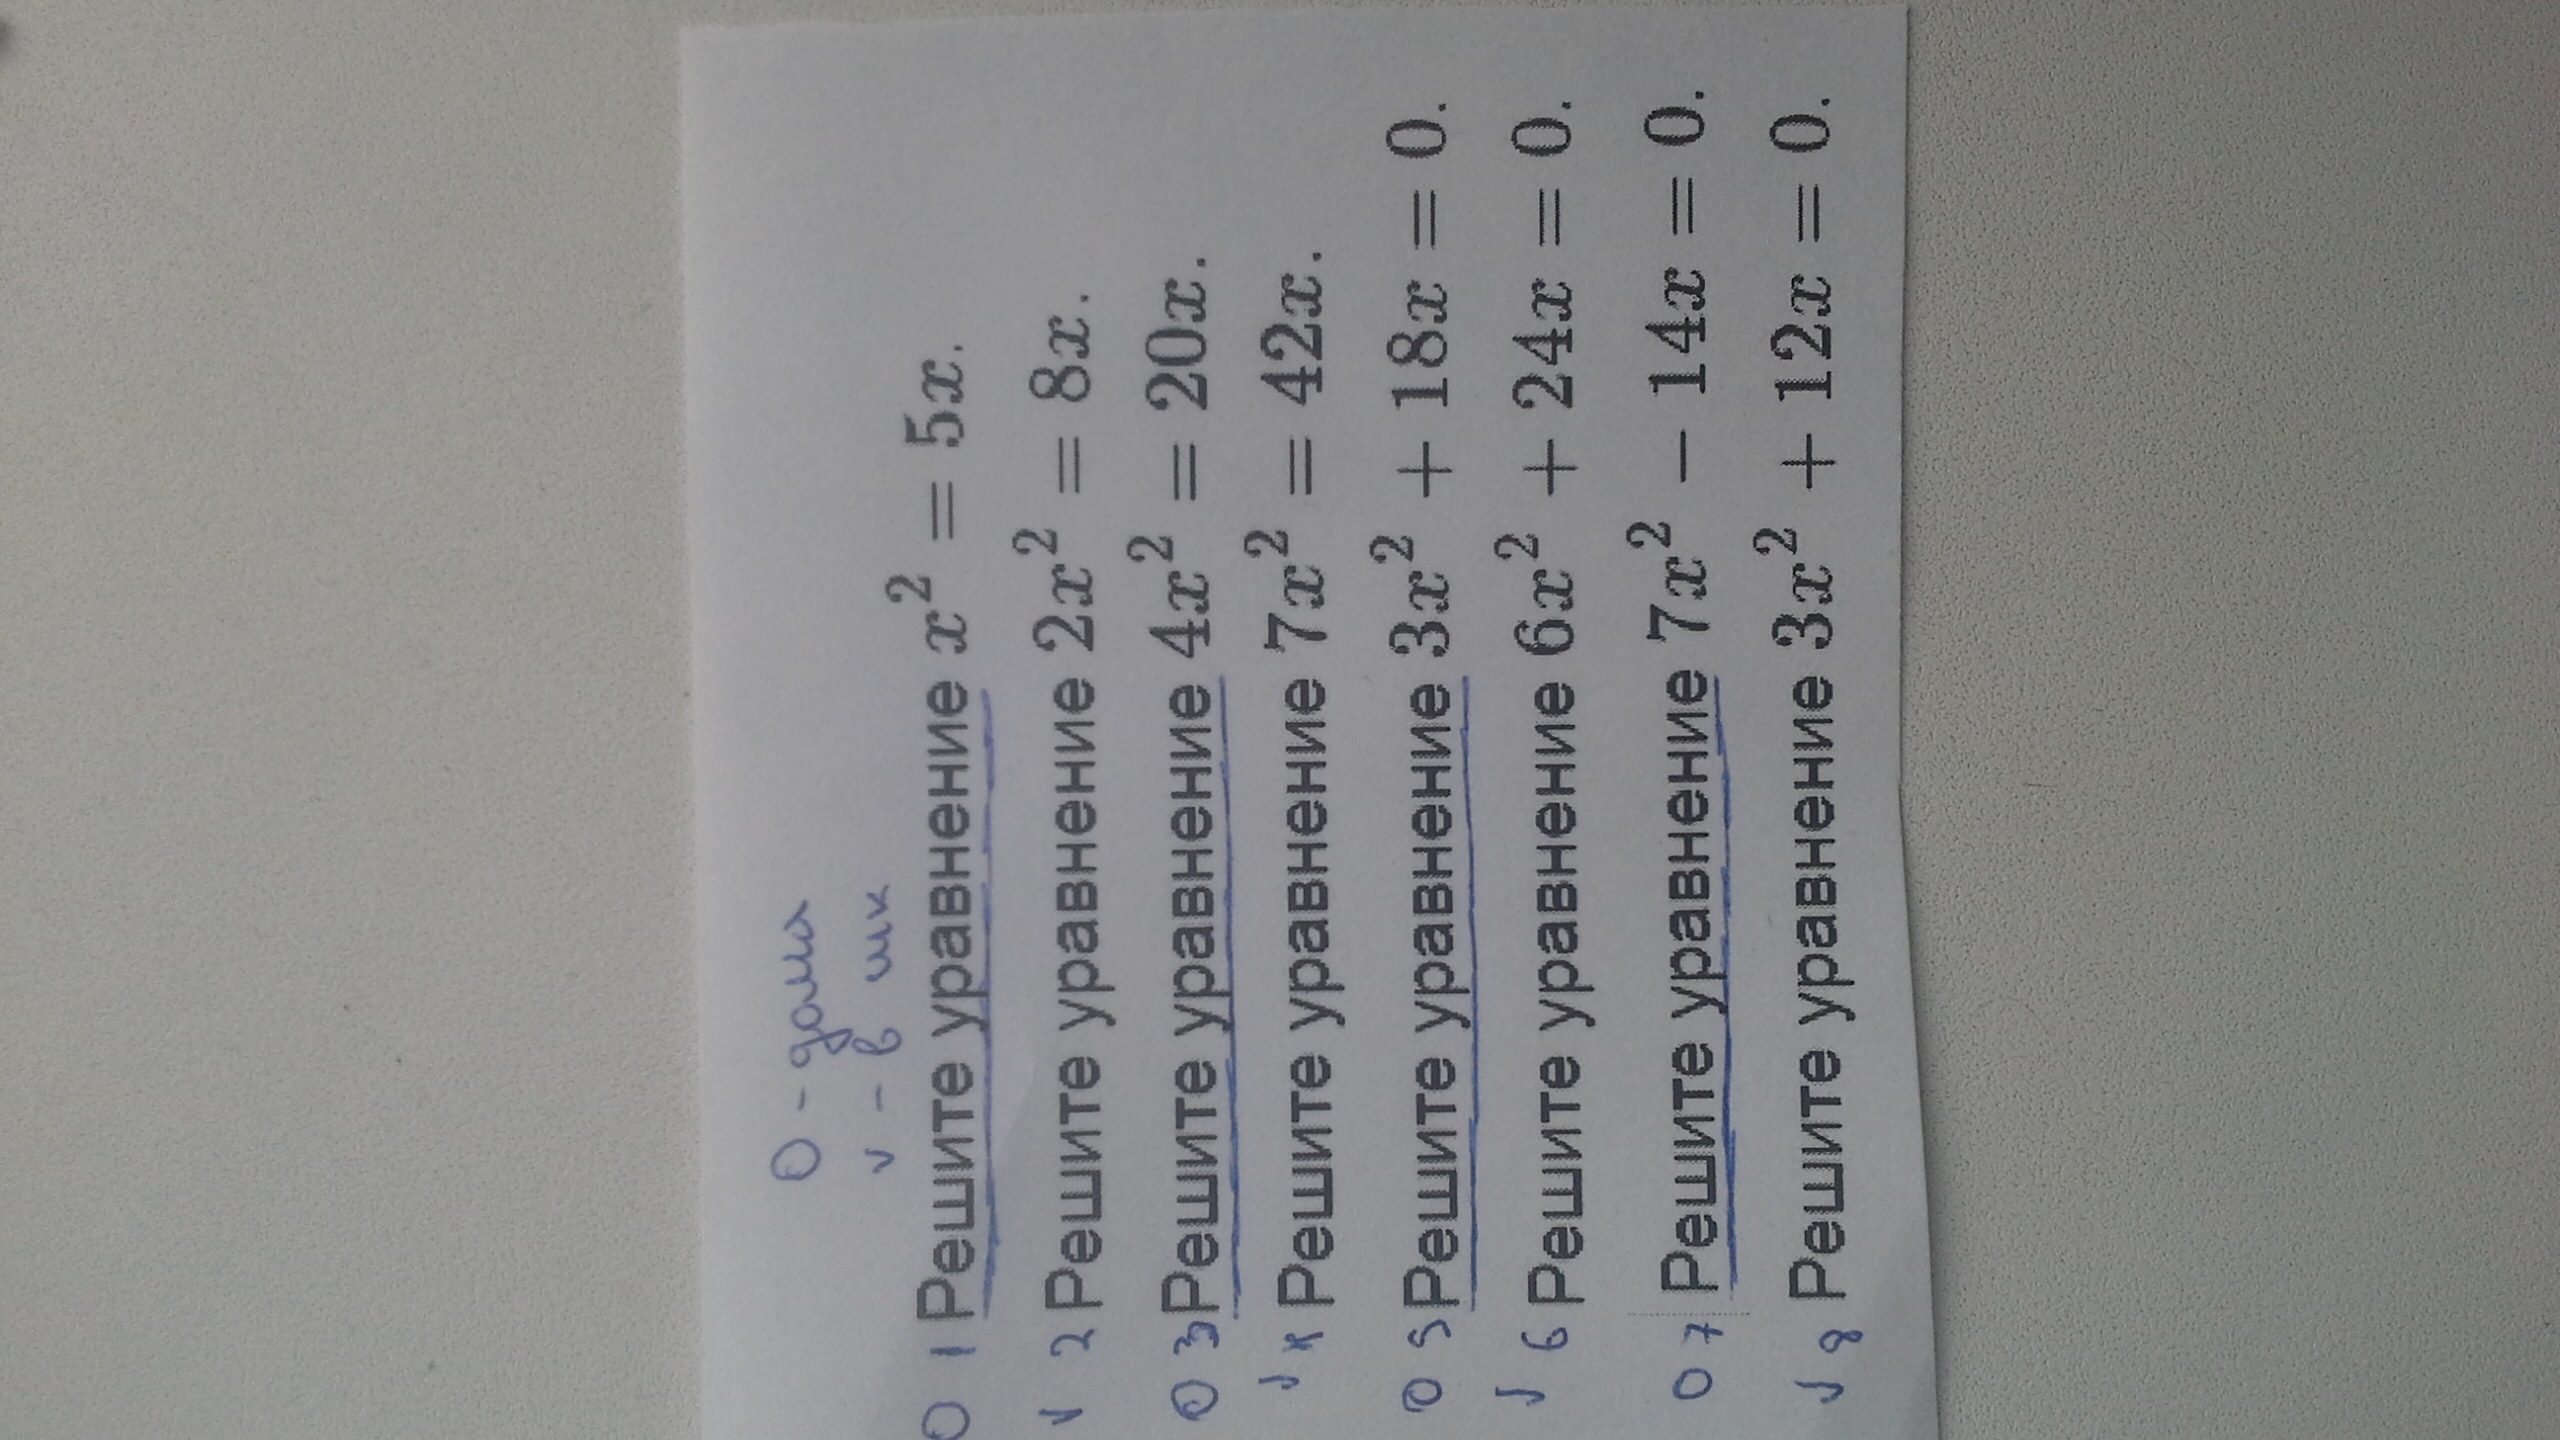 О - дома
v - в шк
О 1 Решите уравнение x² = 5x.
v 2 Решите уравнение 2x² = 8x.
О 3 Решите уравнение 4x² = 20x.
v 4 Решите уравнение 7x² = 42x.
О 5 Решите уравнение 3x² + 18x = 0.
v 6 Решите уравнение 6x² + 24x = 0.
О 7 Решите уравнение 7x² − 14x = 0.
v 8 Решите уравнение 3x² + 12x = 0.